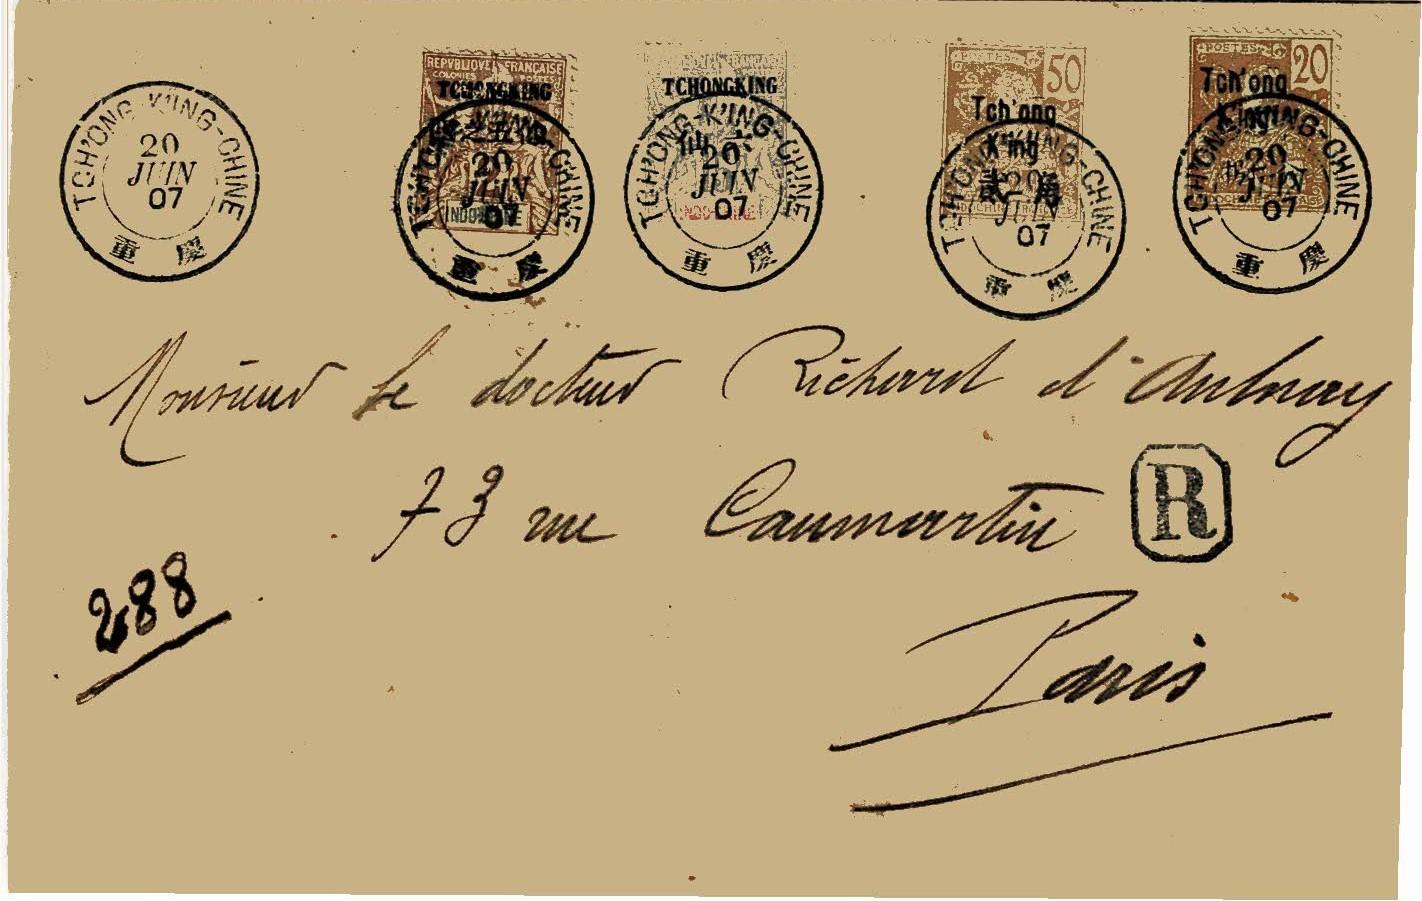 TCH'ONG K'ING-CHINE
20
JUIN
07
重 慶
REPVBLIQVE FRANÇAISE
COLONIES POSTES
TCHONGKING
TCH'ONG K'ING-CHINE
20
JUIN
07
重 慶
TCHONGKING
INDO-CHINE
TCH'ONG-K'ING-CHINE
20
JUIN
07
重 慶
POSTES
50
Tch'ong
K'ing
貳 角
TCH'ONG-K'ING-CHINE
20
JUIN
07
重 慶
POSTES
20
Tch'ong
K'ing
TCH'ONG K'ING-CHINE
20
JUIN
07
重 慶
Monsieur le docteur Richard d'Aulnay
73 rue Caumartin
R
288
Paris